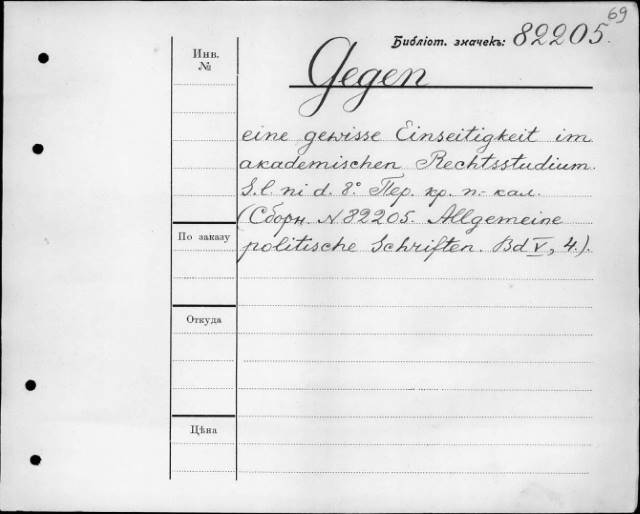 69
Библіот. значекъ: 82205.
Инв.
№
Gegen
eine gewisse Einseitigkeit im
akademischen Rechtsstudium.
S. l. ni d. 8° Пер. кр. п.- кал.
(Сборн. N 82205. Allgemeine
По заказу
politische Schriften. Bd V, 4.).
Откуда
Цѣна